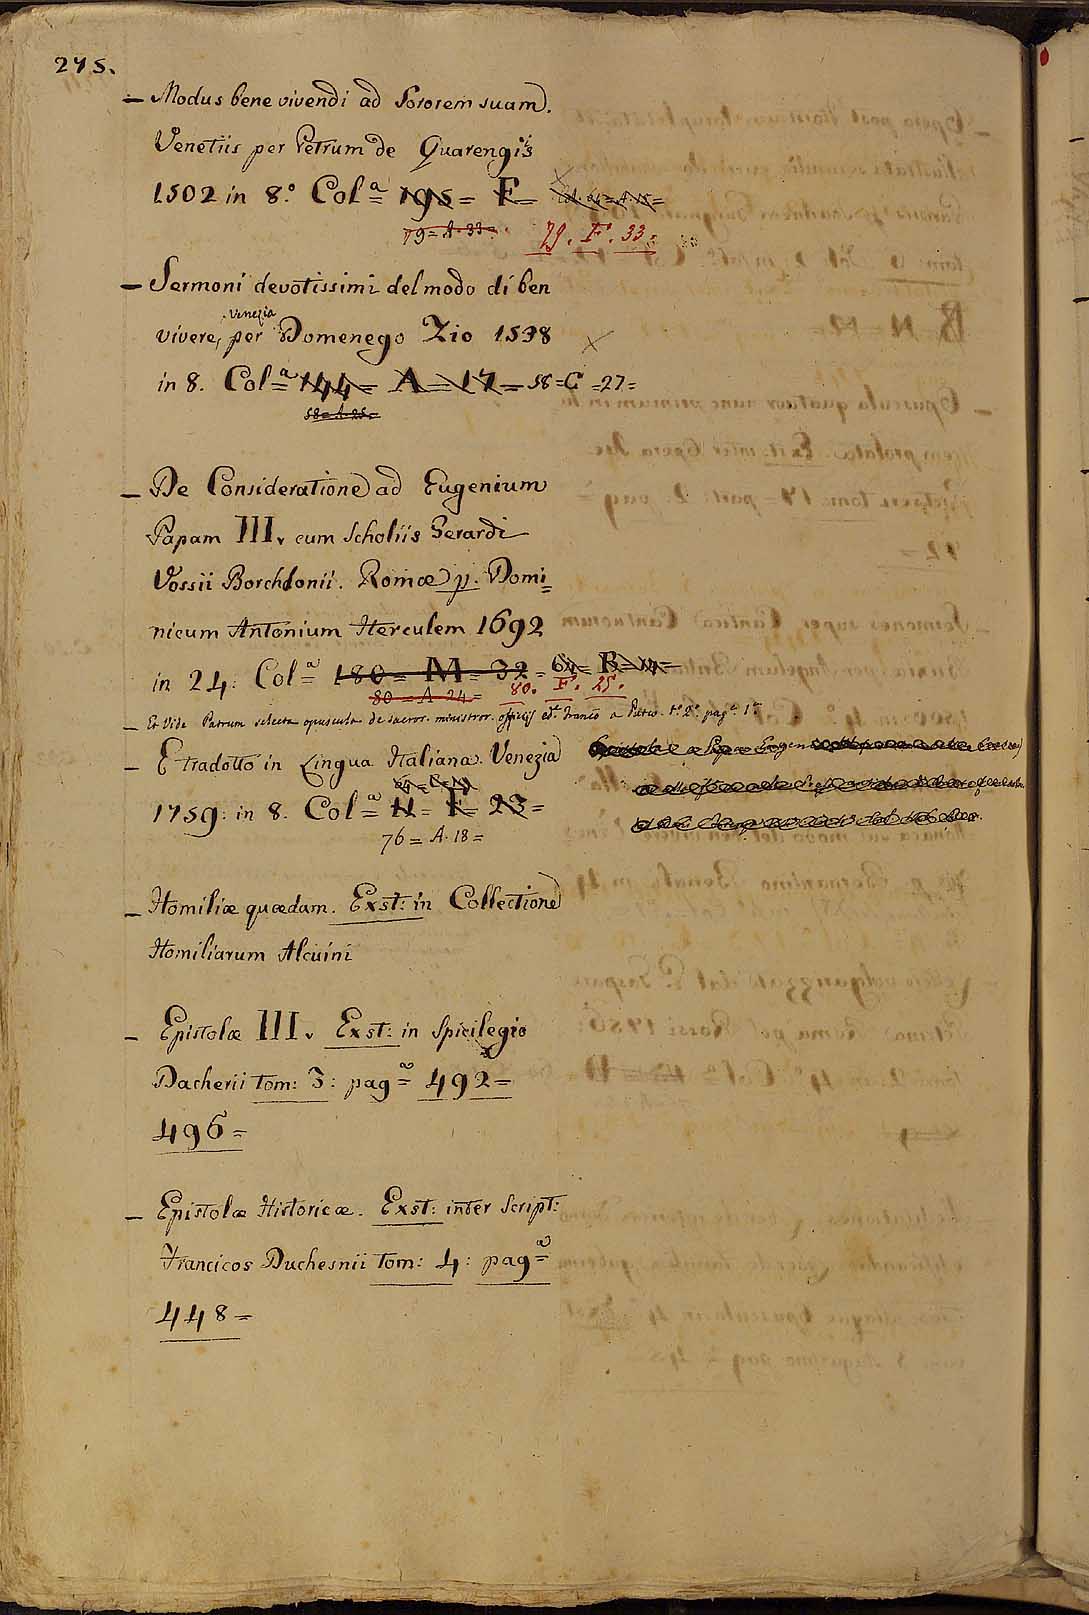 275.
– Modus bene vivendi ad Sororem suam.
Venetiis per Petrum de Quarengiis
1502 in 8.º Colª = 195 = F =
79 = A. 33 = 79. F. 33.
– Sermoni devotissimi del modo di ben
Venezia
vivere, per Domenego Zio 1538
in 8. Colª = 144 = A = 17 = 58 = C = 27 =
58 = A. 25 =
– De Consideratione ad Eugenium
Papam III. cum Scholiis Gerardi
Vossii Borchlonii. Romæ p. Domi=
nicum Antonium Herculem 1692
in 24. Colª = 180 = M = 32 = 64 = B = 14 =
80 = A. 24 = 80. F. 25.
– Et Vide Patrum selecta opuscula de sacror. ministror. officiis ed. Franco a Puteo. tº 2º pagª 1ª
– E tradotto in Lingua Italiana. Venezia
1759. in 8. Colª = H = F = 23 =
76 = A. 18 =
– Homiliæ quædam. Exst: in Collectione
Homiliarum Alcuini
– Epistolæ III. Exst: in Spicilegio
Dacherii tom: 3: pagª = 492 =
496 =
– Epistolæ Historicæ. Exst: inter Script:
Francicos Duchesnii tom: 4: pagª =
448 =